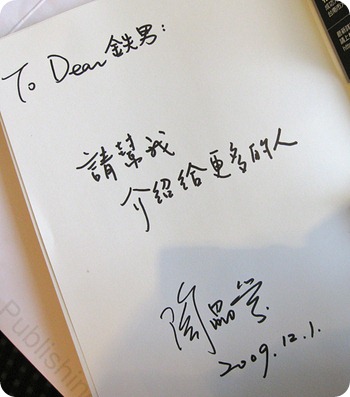 To Dear 鉄男:
請幫我
介紹給更多的人
陶晶瑩
2009.12.1.
Publishin